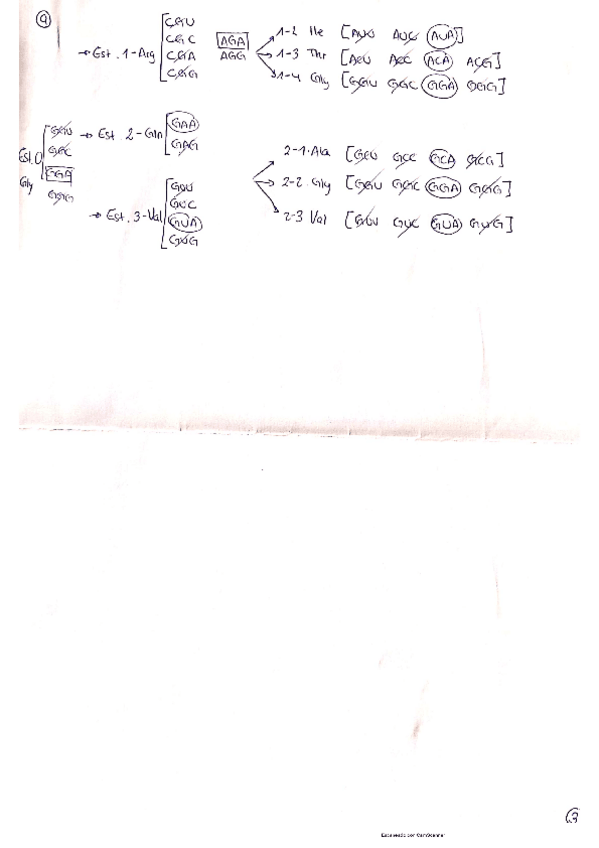 9
CGU
CGC AGA 1-2 Ile [AUU AUC AUA]
→ Est. 1-Arg CGA AGG 1-3 Thr [ACU ACC ACA ACG]
CGG 1-4 Gly [GGU GGC GGA GGG]
GAA
GGU → Est 2-Gln GAG 2-1. Ala [GCU GCC GCA GCG]
Est. 0 GGC
Gly GGA GUU 2-2. Gly [GGU GGC GGA GGG]
GGG GUC
→ Est. 3-Val GUA 2-3 Val [GUU GUC GUA GUG]
GUG
3
Escaneado por CamScanner